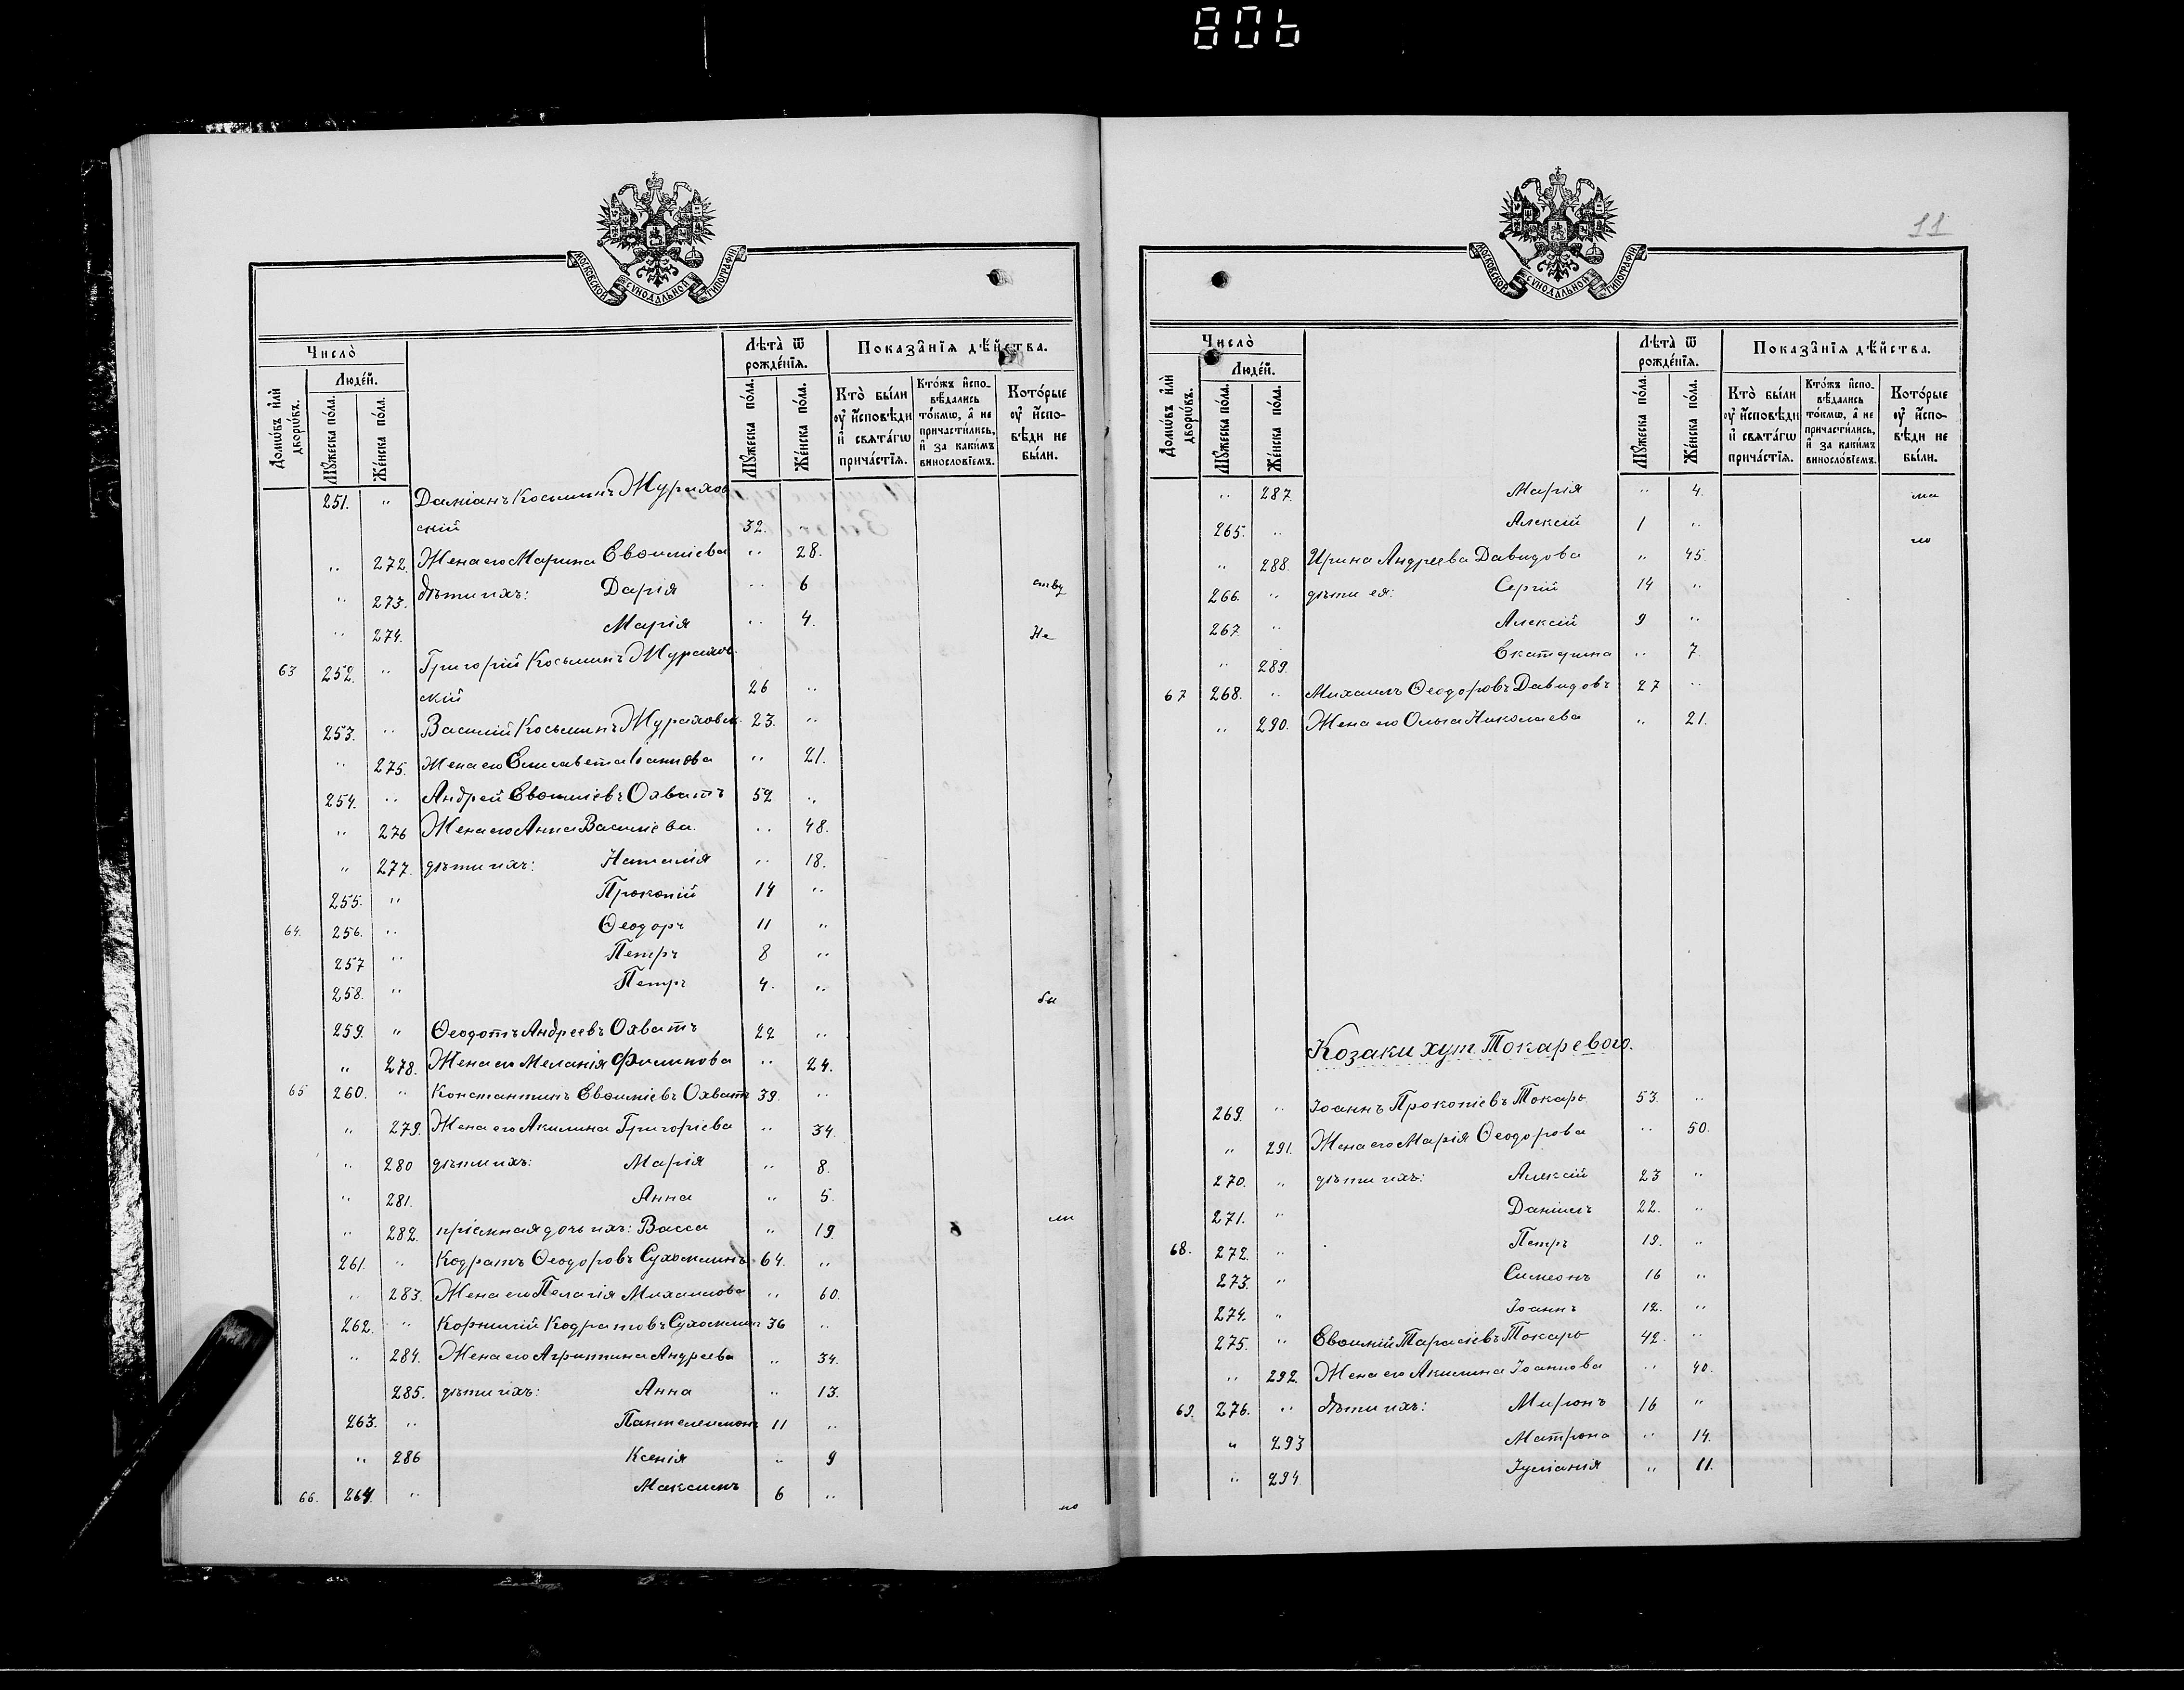 806
МОСКОВСКОЙ СѴНОДАЛЬНОЙ ТИПОГРАФІИ
Число̀
Людéй.
Домѡ́въ и҆лѝ дворѡ́въ.
Мꙋ́жеска по́ла.
Же́нска по́ла.
Лѣта̀ ѿ рожде́нїѧ.
Мꙋ́жеска по́ла.
Же́нска по́ла.
Показа̑нїѧ дѣ́йства.
Кто̀ бы́ли ᲂу҆ и҆́сповѣди и҆ свѧта́гѡ прича́стїѧ.
Кто́жъ и҆спо- вѣ́дались то́кмѡ, а҆ не причасти́лись, и҆ за каки́мъ винослόвїемъ.
Кото́рые ᲂу҆ и҆́спо- вѣди не бы́ли.
251. " Даміанъ Косьминъ Мурахов
скій 32. "
" 272. Жена его Марина Евѳиміева " 28.
" 273. Дѣти ихъ: Дарія " 6 ству
" 274. Марія " 4. Не
63 252. " Григорій Косьминъ Мурахов
скій 26 "
253. " Василій Косьминъ Мураховск. 23. "
" 275. Жена его Елисавета Іаннова " 21.
254. " Андрей Евѳиміевъ Охватъ 52 "
" 276 Жена его Анна Василіева. " 48.
" 277. дѣти ихъ: Наталія " 18.
255. " Прокопій 14 "
64. 256. " Ѳеодоръ 11 "
257 " Петръ 8 "
258. " Петръ 4. " бы
259. " Ѳеодотъ Андреевъ Охватъ 22 "
" 278. Жена его Меланія Филипова " 24.
65 260. " Константинъ Евѳиміевъ Охватъ 39. "
" 279. Жена его Акилина Григоріева " 34.
" 280 дѣти ихъ: Марія " 8.
" 281. Анна " 5.
" 282. пріемная дочь ихъ: Васса " 19. ли
261. " Кодратъ Ѳеодоровъ Сухомлинъ 64. "
" 283. Жена его Пелагія Михаилова " 60.
262. " Корнилій Кодратовъ Сухомлин 36 "
" 284. Жена его Агрипина Андреева " 34.
285. дѣти ихъ: Анна " 13.
263. " Пантелеимонъ 11 "
" 286 Ксенія " 9
66. 264. " Максимъ 6 " по
11
МОСКОВСКОЙ СѴНОДАЛЬНОЙ ТИПОГРАФІИ
Число̀
Людéй.
Домѡ́въ и҆лѝ дворѡ́въ.
Мꙋ́жеска по́ла.
Же́нска по́ла.
Лѣта̀ ѿ рожде́нїѧ.
Мꙋ́жеска по́ла.
Же́нска по́ла.
Показа̑нїѧ дѣ́йства.
Кто̀ бы́ли ᲂу҆ и҆́сповѣди и҆ свѧта́гѡ прича́стїѧ.
Кто́жъ и҆спо- вѣ́дались то́кмѡ, а҆ не причасти́лись, и҆ за каки́мъ винослόвїемъ.
Кото́рые ᲂу҆ и҆́спо- вѣди не бы́ли.
" 287. Марія " 4. ма
265. " Алексій 1 " ло
" 288. Ирина Андреева Давидова " 45
266. " дѣти ея: Сергій 14 "
267 " Алексій 9 "
" 289. Екатерина " 7.
67 268. " Михаилъ Ѳеодоровъ Давидовъ 27 "
" 290. Жена его Ольга Николаева " 21.
Козаки хут. Токаревого.
269. " Іоаннъ Прокопіевъ Токарь 53. "
" 291. Жена его Марія Ѳеодорова " 50.
270. " дѣти ихъ: Алексій 23 "
271. " Даніилъ 22. "
68. 272. " Петръ 19. "
273. " Симеонъ 16 "
274. " Іоаннъ 12. "
275. " Евѳимій Тарасіевъ Токарь 42. "
" 292. Жена его Акилина Іоаннова " 40.
69. 276. " Дѣти ихъ: Миронъ 16 "
" 293 Матрона " 14.
" 294. Іуліанія " 11.